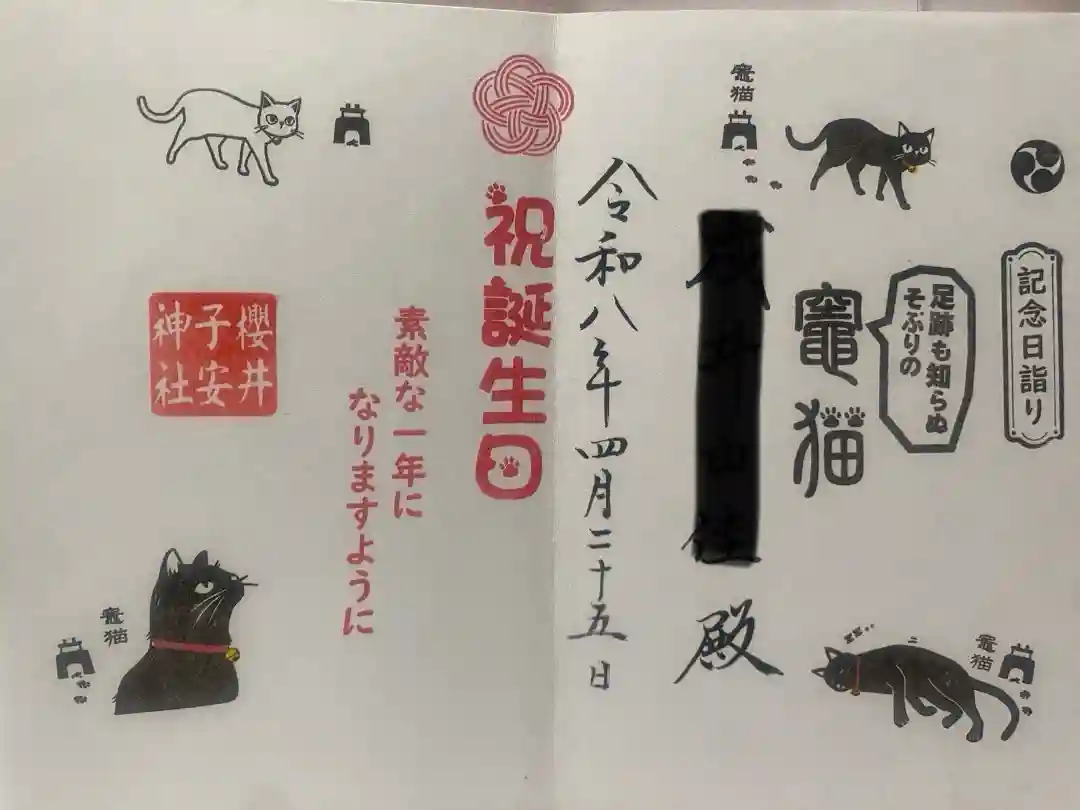 記念日詣り
足跡も知らぬ
そぶりの
竈猫
竈猫
殿
令和八年四月二十五日
祝誕生日
素敵な一年に
なりますように
櫻井
子安
神社
竈猫
竈猫
zzz..